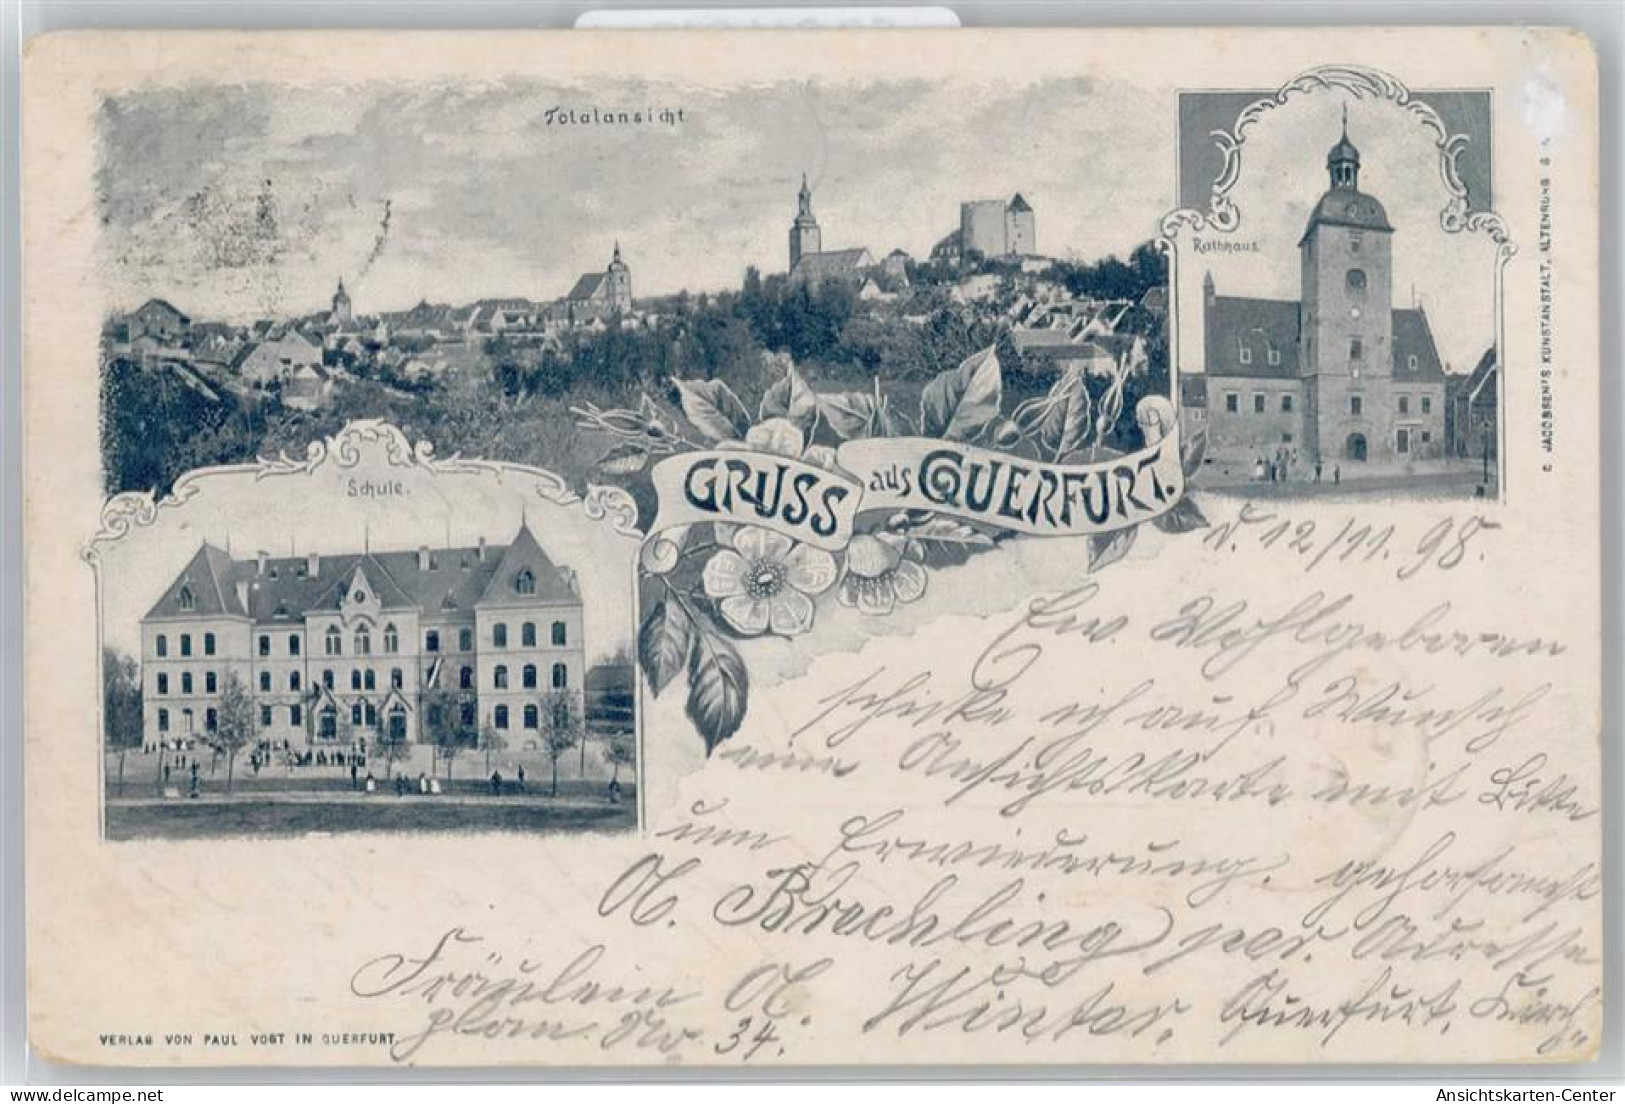 Totalansicht
Rathhaus.
Schule.
GRUSS aus QUERFURT.
d. 12/11. 98.
Ew. Wohlgeboren
schicke ich auf Wunsch
eine Ansichtskarte mit Bitte
um Erwiederung. gehorsamst
A. Brechling per Adresse
Fräulein A. Winter, Querfurt, Kirch-
plan No 34.
VERLAG VON PAUL VOGT IN QUERFURT.
JACOBSEN'S KUNSTANSTALT, ALTENBURG S
delcampe.net
Ansichtskarten-Center